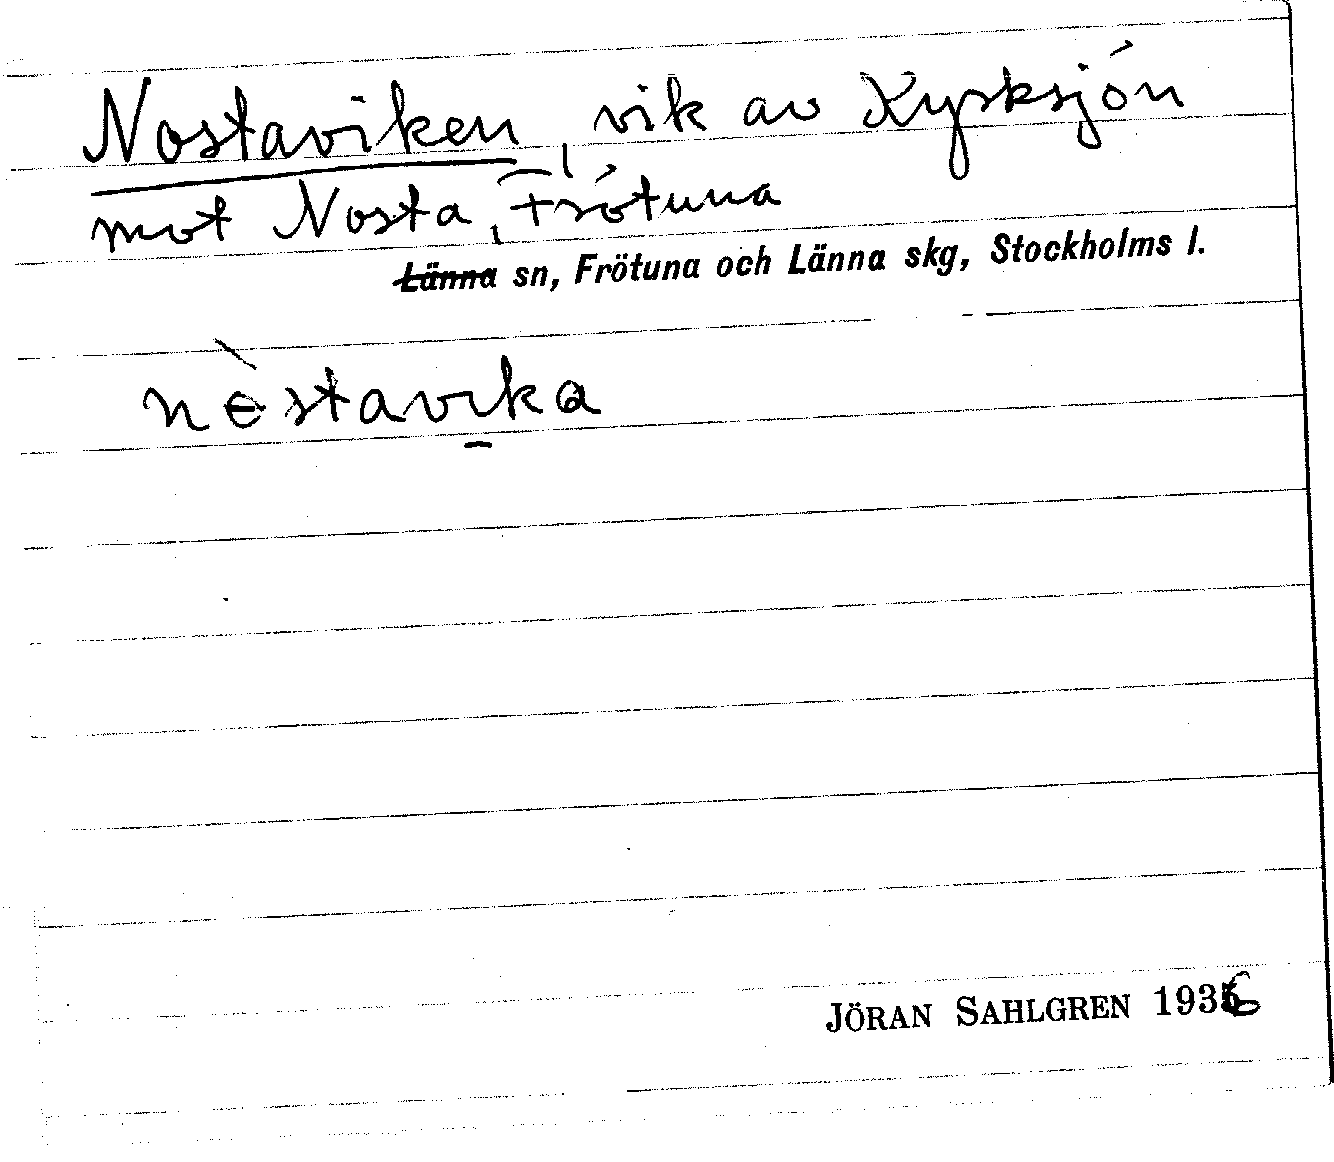 Nostaviken, vik av Kysksjön
mot Nosta, Frötuna
Länna sn, Frötuna och Länna skg, Stockholms l.
nèstavika
JÖRAN SAHLGREN 1936